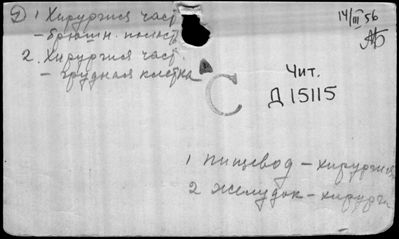 1 Хирургия част.
14/III 56
- брюшн. полост
2. Хирургия част.
- грудная клетка
С
Чит.
Д 15115
1 пищевод - хирургия
2 желудок - хирурги